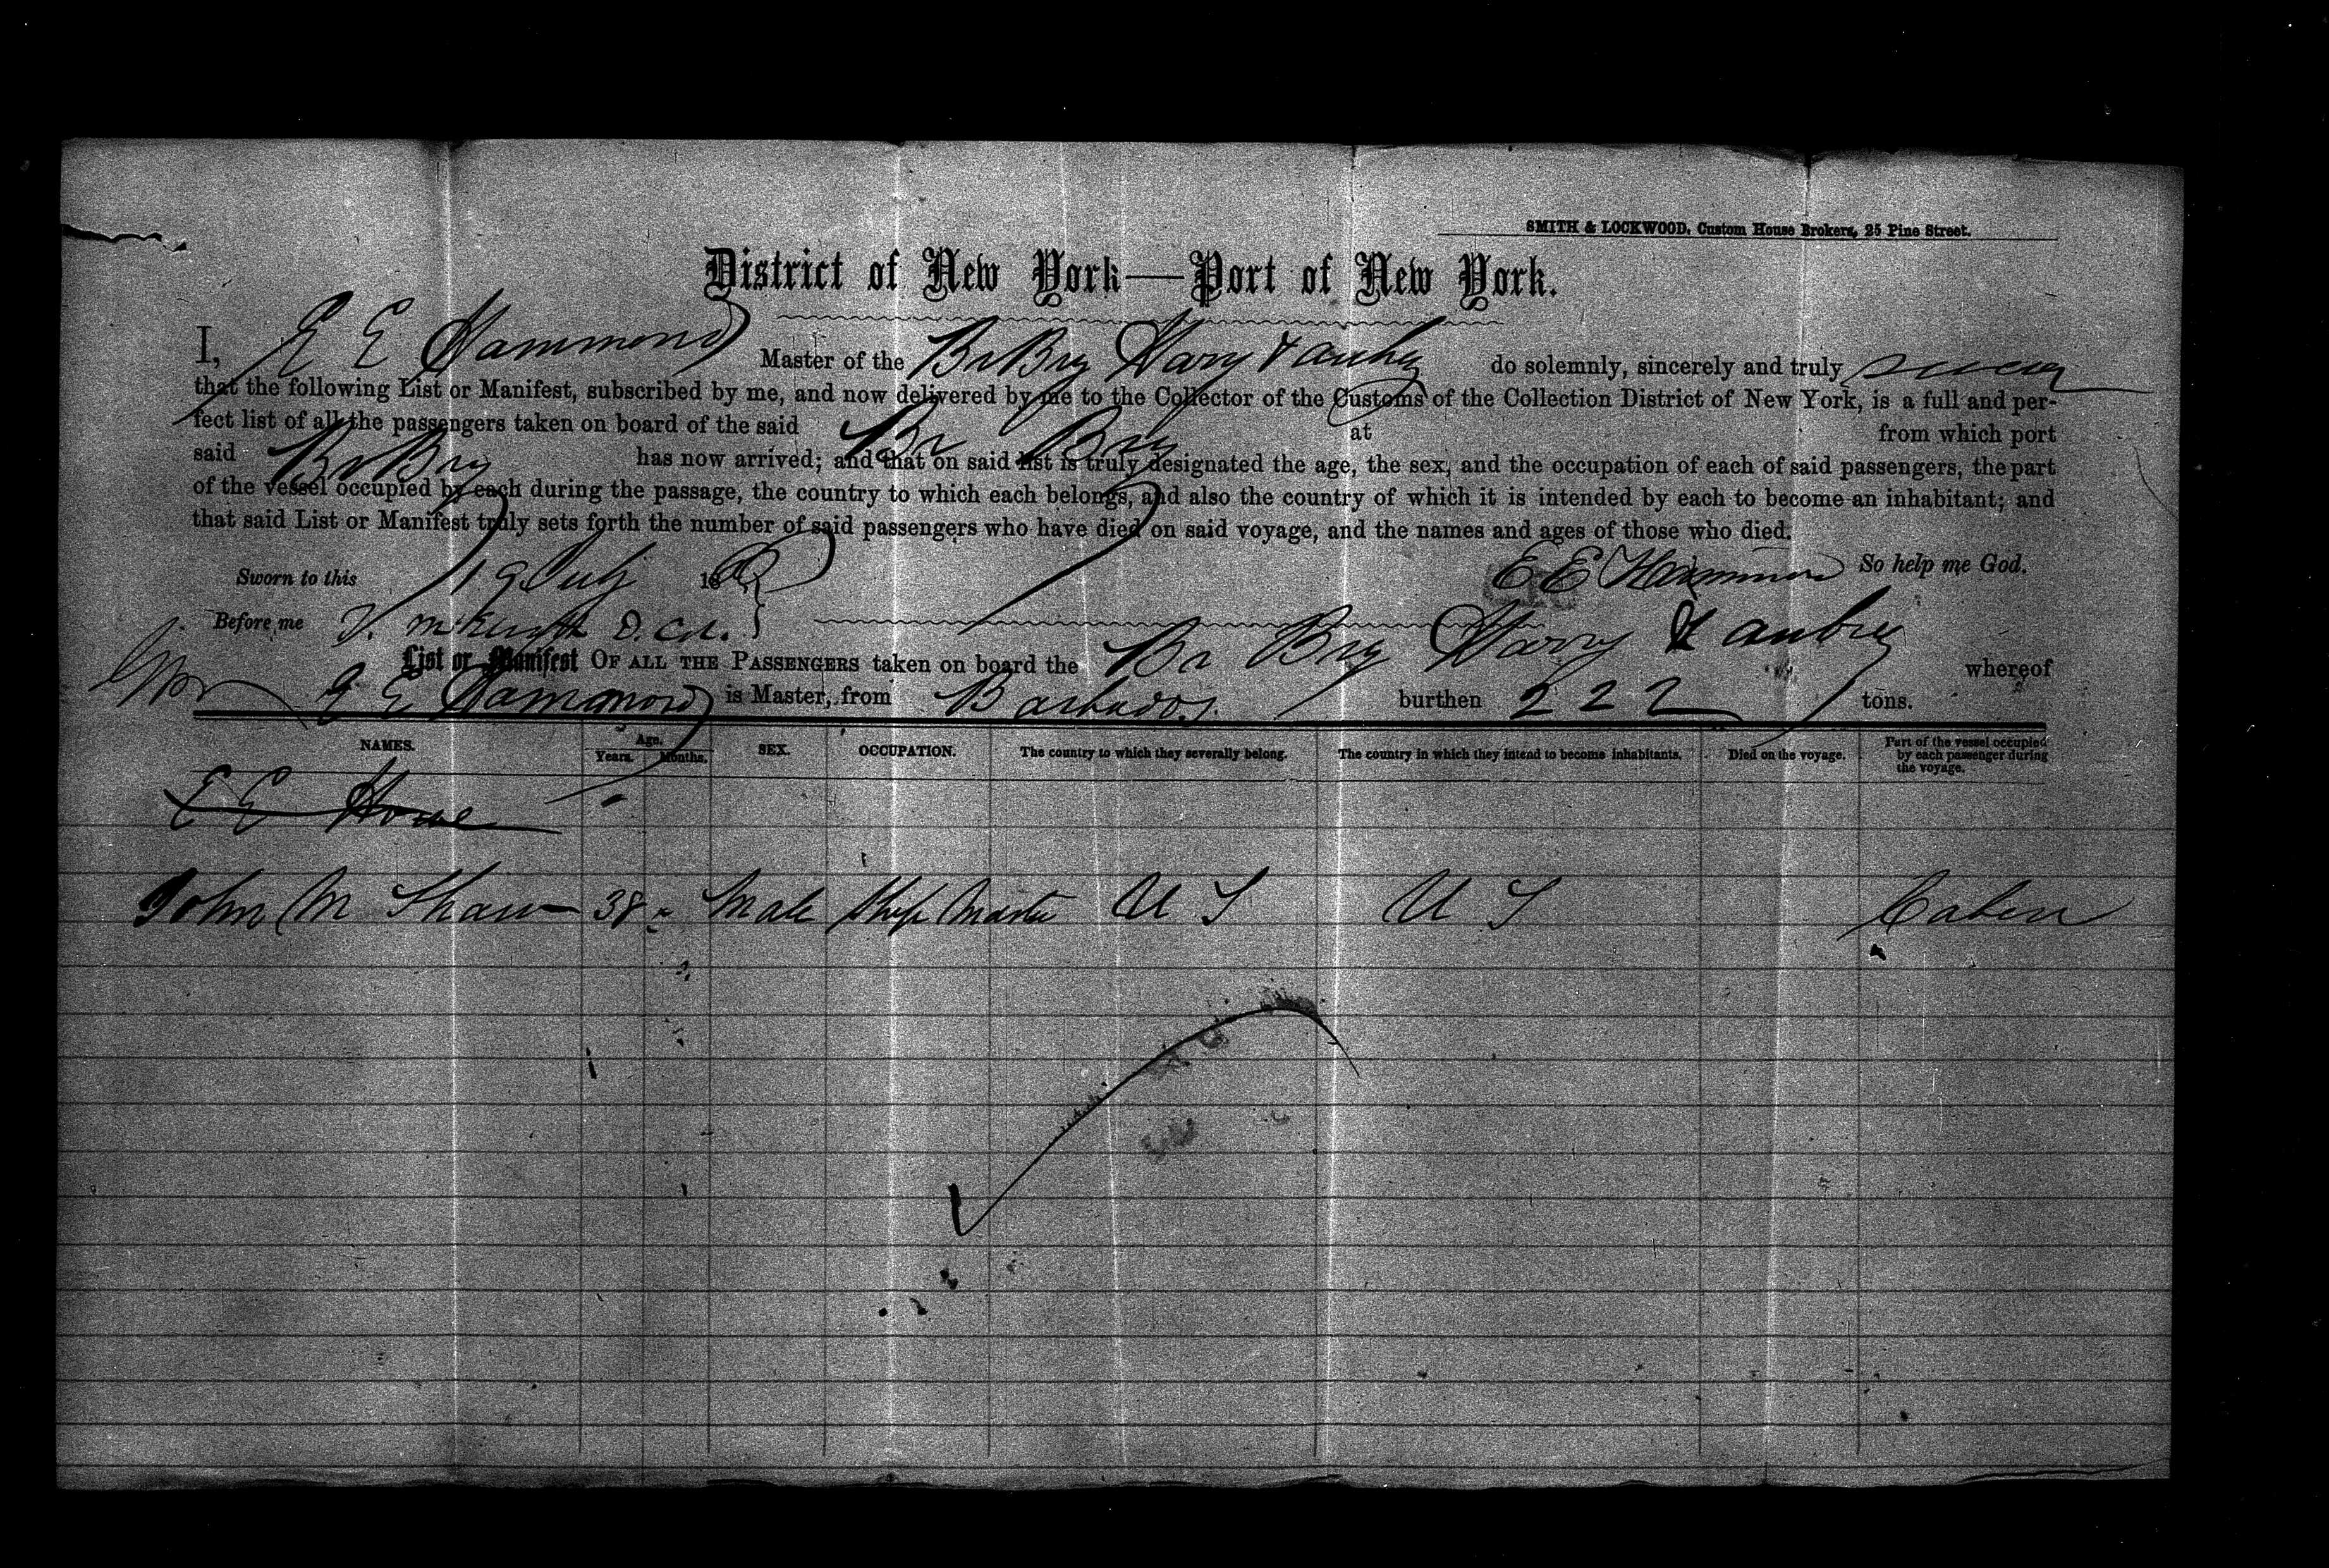 SMITH & LOCKWOOD, Custom House Brokers, 25 Pine Street.
District of New York—Port of New York.
I, E E Hammond Master of the Br Brg Harry & Aubrey do solemnly, sincerely and truly swear
that the following List or Manifest, subscribed by me, and now delivered by me to the Collector of the Customs of the Collection District of New York, is a full and per-
fect list of all the passengers taken on board of the said Br Brg at from which port
said Br Brg has now arrived; and that on said list is truly designated the age, the sex, and the occupation of each of said passengers, the part
of the vessel occupied by each during the passage, the country to which each belongs, and also the country of which it is intended by each to become an inhabitant; and
that said List or Manifest truly sets forth the number of said passengers who have died on said voyage, and the names and ages of those who died.
Sworn to this 19 July 18 E E Hammond So help me God.
Before me D. Col.
List or Manifest OF ALL THE PASSENGERS taken on board the Br Brg Harry & Aubrey whereof
E E Hammond is Master, from Barbados burthen 222 tons.
NAMES. Age. Years. Months. SEX. OCCUPATION. The country to which they severally belong. The country in which they intend to become inhabitants. Died on the voyage. Part of the vessel occupied by each passenger during the voyage.
E E
John M Shaw 38 Male Ship Master U S U S Caben